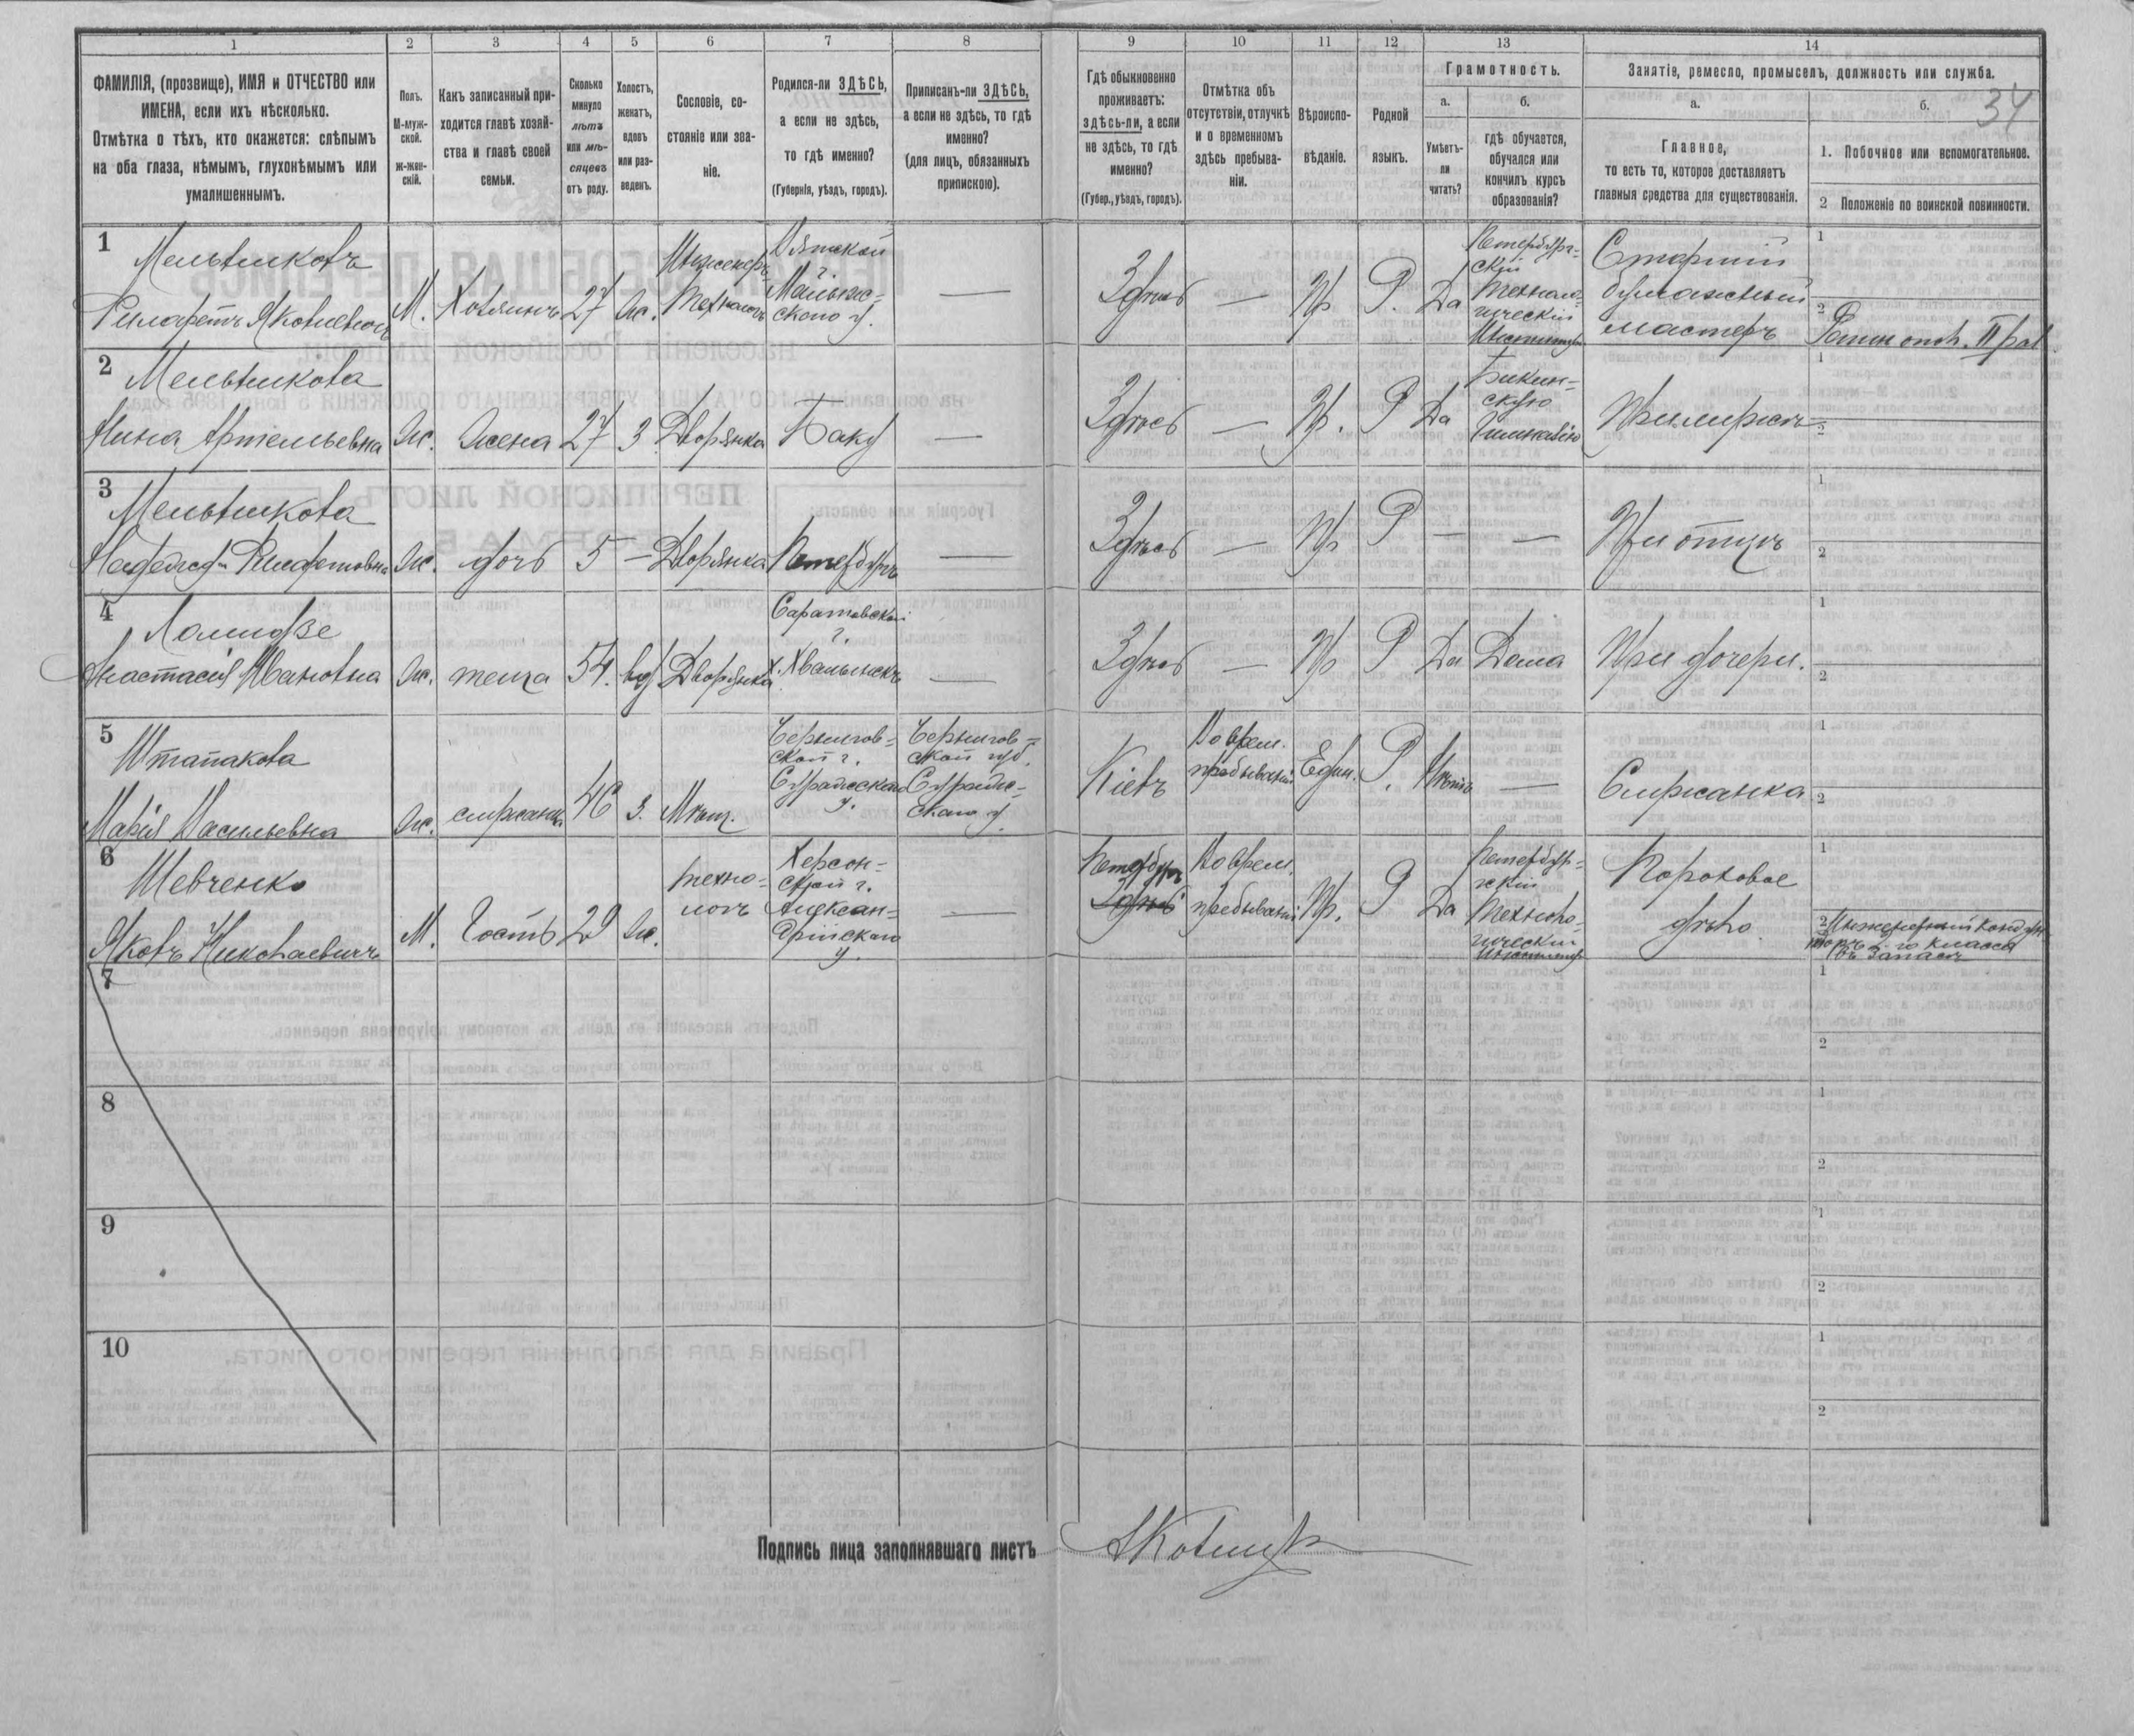 1 2 3 4 5 6 7 8 9 10 11 12 13 14
34
ФАМИЛІЯ, (прозвище), ИМЯ и ОТЧЕСТВО или
ИМЕНА, если ихъ нѣсколько.
Отмѣтка о тѣхъ, кто окажется: слѣпымъ
на оба глаза, нѣмымъ, глухонѣмымъ или
умалишеннымъ.
Полъ.
М-муж-
ской.
ж-жен-
скій.
Какъ записанный при-
ходится главѣ хозяй-
ства и главѣ своей
семьи.
Сколько
минуло
лѣтъ
или мѣ-
сяцевъ
отъ роду.
Холостъ,
женатъ,
вдовъ
или раз-
веденъ.
Сословіе, со-
стояніе или зва-
ніе.
Родился-ли ЗДѢСЬ,
а если не здѣсь,
то гдѣ именно?
(Губернія, уѣздъ, городъ).
Приписанъ-ли ЗДѢСЬ,
а если не здѣсь, то гдѣ
именно?
(для лицъ, обязанныхъ
припискою).
Гдѣ обыкновенно
проживаетъ:
здѣсь-ли, а если
не здѣсь, то гдѣ
именно?
(Губер., уѣздъ, городъ).
Отмѣтка объ
отсутствіи, отлучкѣ
и о временномъ
здѣсь пребыва-
ніи.
Вѣроиспо-
вѣданіе.
Родной
языкъ.
Грамотность.
а.
Умѣетъ-
ли
читать?
б.
гдѣ обучается,
обучался или
кончилъ курсъ
образованія?
Занятіе, ремесло, промыселъ, должность или служба.
а.
Главное,
то есть то, которое доставляетъ
главныя средства для существованія.
б.
1. Побочное или вспомогательное.
2 Положеніе по воинской повинности.
1
Мельниковъ
Филаретъ Яковлевичъ
М.
Хозяинъ
27
Ж.
Инженеръ
Технологъ
Вятской
г.
Малмыж-
скаго у.
—
Здѣсь
—
Пр
Р.
Да
Петербург-
скій
Техноло-
гическій
Институтъ
Старшій
бумажный
мастеръ
1
2
Ратн опол. II раз
2
Мельникова
Нина Артемьевна
Ж.
Жена
27
З.
Дворянка
Баку
—
Здѣсь
—
Пр.
Р
Да
Бакин-
скую
Гимназію
При мужѣ
1
2
3
Мельникова
Надежда Филаретовна
Ж.
дочь
5
—
Дворянка
Петербургъ
—
Здѣсь
—
Пр
Р
—
—
При отцѣ
1
2
4
Ломидзе
Анастасія Ивановна
Ж.
теща
54.
вд
Дворянка
Саратовской
г.
г. Хвалынскъ
—
Здѣсь
—
Пр
Р
Да
Дома
При дочери.
1
2
5
Штапакова
Марія Васильевна
Ж.
служанка
46
З.
Мѣщ.
Чернигов-
ской г.
Суражскаго
у.
Чернигов-
ской губ.
Сураж-
скаго у.
Кіевъ
Во врем.
пребываніи
Един.
Р.
Нѣтъ
—
Служанка
1
2
6
Шевченко
Яковъ Николаевичъ
М.
Гость
29
Ж.
техно-
логъ
Херсон-
ской г.
Алексан-
дрійскаго
у.
—
Петербургъ
Здѣсь
Во врем.
пребываніи
Пр.
Р
Да
Петербур-
гскій
Техноло-
гическій
Институтъ
Пороховое
дѣло
1
2 Инженерный Конду-
торъ 2-го класса
въ Запасѣ
7
1
2
8
1
2
9
1
2
10
1
2
Подпись лица заполнявшаго листъ